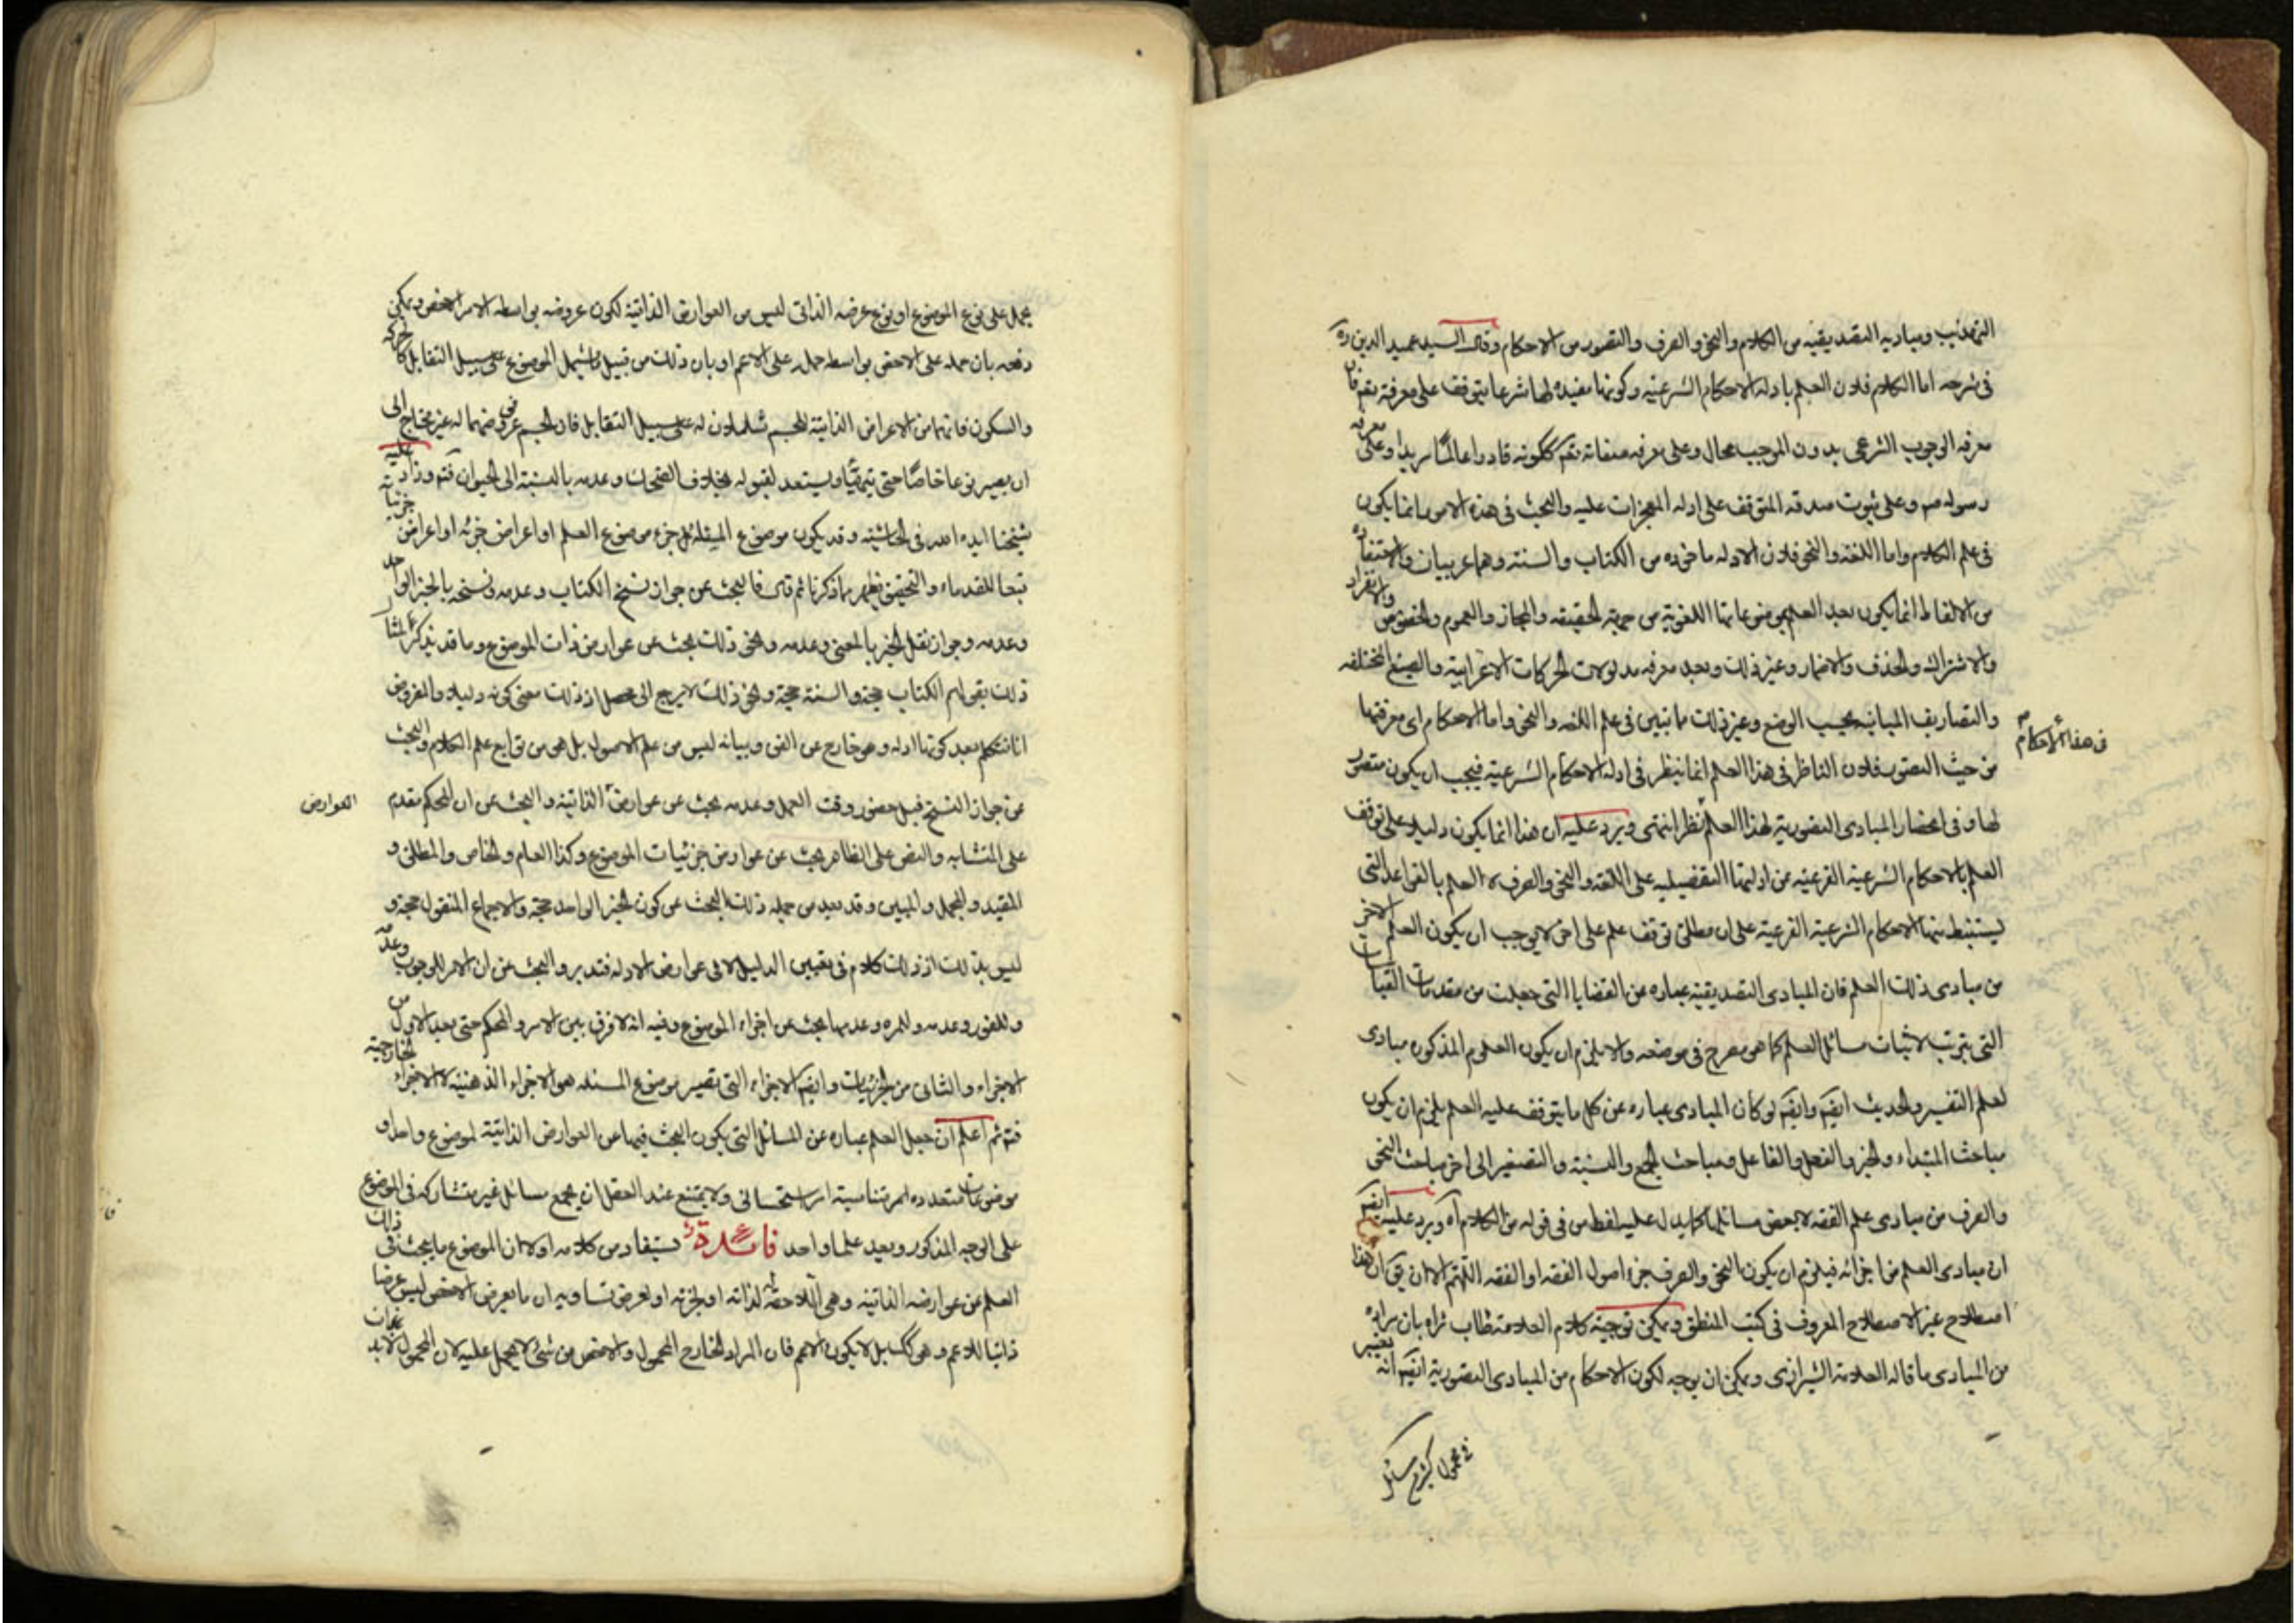 التهذيب ومباديه التصديقيه من الكلام والنحو والصرف والتصور من الاحكام وقال السيد عميد الدين ره
فى شرحه اما الكلام فلان العلم بادله الاحكام الشرعيه وكونها مفيده لها شرعا يتوقف على معرفة الله تعم فان
معرفه الوجوب الشرعى بدون الموجب محال وعلى معرفه صفاته تعم ككونه قادرا عالما مريدا وعلى معرفه
رسوله صم وعلى ثبوت صدقه المتوقف على ادله المعجزات عليه والبحث فى هذه الامور انما يكون
فى علم الكلام واما اللغه والنحو فلان الادله ماخوذه من الكتاب والسنه وهما عربيان والاستفاده
من الالفاظ انما يكون بعد العلم بموضوعاتها اللغوية من جهة الحقيقه والمجاز والعموم والخصوص والانفراد
والاشتراك والحذف والاضمار وغير ذلك وبعد معرفه مدلولات الحركات الاعرابية والصيغ المختلفه
والتصاريف المباينه بحسب الوضع وغير ذلك مما تبين فى علم اللغه والنحو واما الاحكام اى معرفتها
من حيث التصور فلان الناظر فى هذا العلم انما ينظر فى ادله الاحكام الشرعية فيجب ان يكون متصورا
لها وفى انحصار المبادى التصوريه لهذا العلم نظر انتهى ويرد عليه ان هذا انما يكون دليلا على توقف
فى هذا الاحكام
العلم بالاحكام الشرعية الفرعيه عن ادلتها التفضيليه على اللغه والنحو والصرف لا العلم بالقواعد التى
يستنبط منها الاحكام الشرعية الفرعية على ان مطلق توقف علم على اخر لا يوجب ان يكون العلم الاخر
من مبادى ذلك العلم فان المبادى التصديقيه عباره عن القضايا التى جعلت من مقدمات القياس
التى يترتب لاثبات مسائل العلم كما هو مصرح فى موضعه والا يلزم ان يكون العلوم المذكوره مبادى
لعلم التفسير والحديث ايضم وايضم لو كان المبادى عباره عن كل ما يتوقف عليه العلم يلزم ان يكون
مباحث المبتداء والخبر والفعل والفاعل ومباحث الجمع والنسبة والتصغير الى اخر مباحث النحو
والصرف من مبادى علم الفقه لا بعض مسائلها كما يدل عليه لفظ من فى قوله من الكلام آه ويرد عليه ايضم
ان مبادى العلم من اجزائه فيلزم ان يكون النحو والصرف جزء اصول الفقه او الفقه اللهم الا ان يق ان هذا
اصطلاح غير الاصطلاح المعروف فى كتب المنطق ويمكن توجيه كلام العلامة طاب ثراه بان مراده
من المبادى ما قاله العلامة الشيرازى ويمكن ان يوجه لكون الاحكام من المبادى التصوريه ايضم انه يعتبر
يحمل على نوع الموضوع او نوع عرضه الذاتى ليس من العوارض الذاتية لكون عروضه بواسطه الامر الاخص ويمكن
دفعه بان حمله على الاخص بواسطه حمله على الاعم او بان ذلك من قبيل ما يشمل الموضوع على سبيل التقابل كالحركه
والسكون فانهما من الاعراض الذاتية للجسم شاملان له على سبيل التقابل فان الجسم فى عروضهما له غير محتاج الى
ان يصير نوعا خاصا حتى يتهيأ ويستعد لقبوله بخلاف الضحك وعدمه بالنسبة الى الحيوان فتم وزاد عليه
شيخنا ايده الله فى الحاشيته وقد يكون موضوع المسئله جزء موضوع العلم او اعراض جزئه او اعراض جزئياته
تبعا للقدماء والتحقيق يظهر مما ذكرنا ثم قال فالبحث عن جواز نسخ الكتاب وعدمه ونسخه بالخبر الواحد
وعدمه وجواز نقل الخبر بالمعنى وعدمه ونحو ذلك بحث عن عوارض ذات الموضوع وما قد يذكر مثالا
ذلك بقولهم الكتاب حجة والسنة حجة ونحو ذلك لا يرجع الى محصل اذ ذلك معنى كونه دليلا والمفروض
انا نتكلم بعد كونها ادله وهو خارج عن الفن وبيانه ليس من علم الاصول بل هو من توابع علم الكلام والبحث
عن جواز النسخ قبل حضور وقت العمل وعدمه بحث عن عوارض الذاتية والبحث عن ان المحكم مقدم
العوارض
على المتشابه والنص على الظاهر بحث عن عوارض جزئيات الموضوع وكذا العام والخاص والمطلق و
المقيد والمجمل والمبين وقد يعد من جمله ذلك البحث عن كون الخبر الواحد حجة والاجماع المنقول حجة و
ليس بذلك اذ ذلك كلام فى تعيين الدليل لا فى عوارض الادله فتدبر والبحث عن ان الامر للوجوب وعدمه
وللفور وعدمه وللمره وعدمها بحث عن اجزاء الموضوع وفيه انه لا فرق بين الامر والمحكم حتى يعد الاول من
الاجزاء والثانى من الجزئيات وايضم الاجزاء التى تصير موضوع المسئله هو الاجزاء الذهنيه لا الاجزاء الخارجية
فتم ثم اعلم ان جعل العلم عباره عن المسائل التى يكون البحث فيها عن العوارض الذاتية لموضوع واحد او
موضوعات متعدده لمر متناسبة امر استحسانى ولا يمتنع عند العقل ان يجمع مسائل غير متشاركه فى الموضوع
على الوجه المذكور ويعد علما واحد فائدة يستفاد من كلامه اولا ان الموضوع ما يبحث فى ذلك
العلم عن عوارضه الذاتيه وهى اللاحقه له لذاته او لجزئه او لعرض تساويه وان ما يعرض الاخص ليس عرضا
ذاتيا للاعم وهو كك بل لا يكون للاعم فان المراد الخارج المحمول والاخص من شئ لا يحمل عليه لان المحمول لابد
فى محمول كثير من مسائل